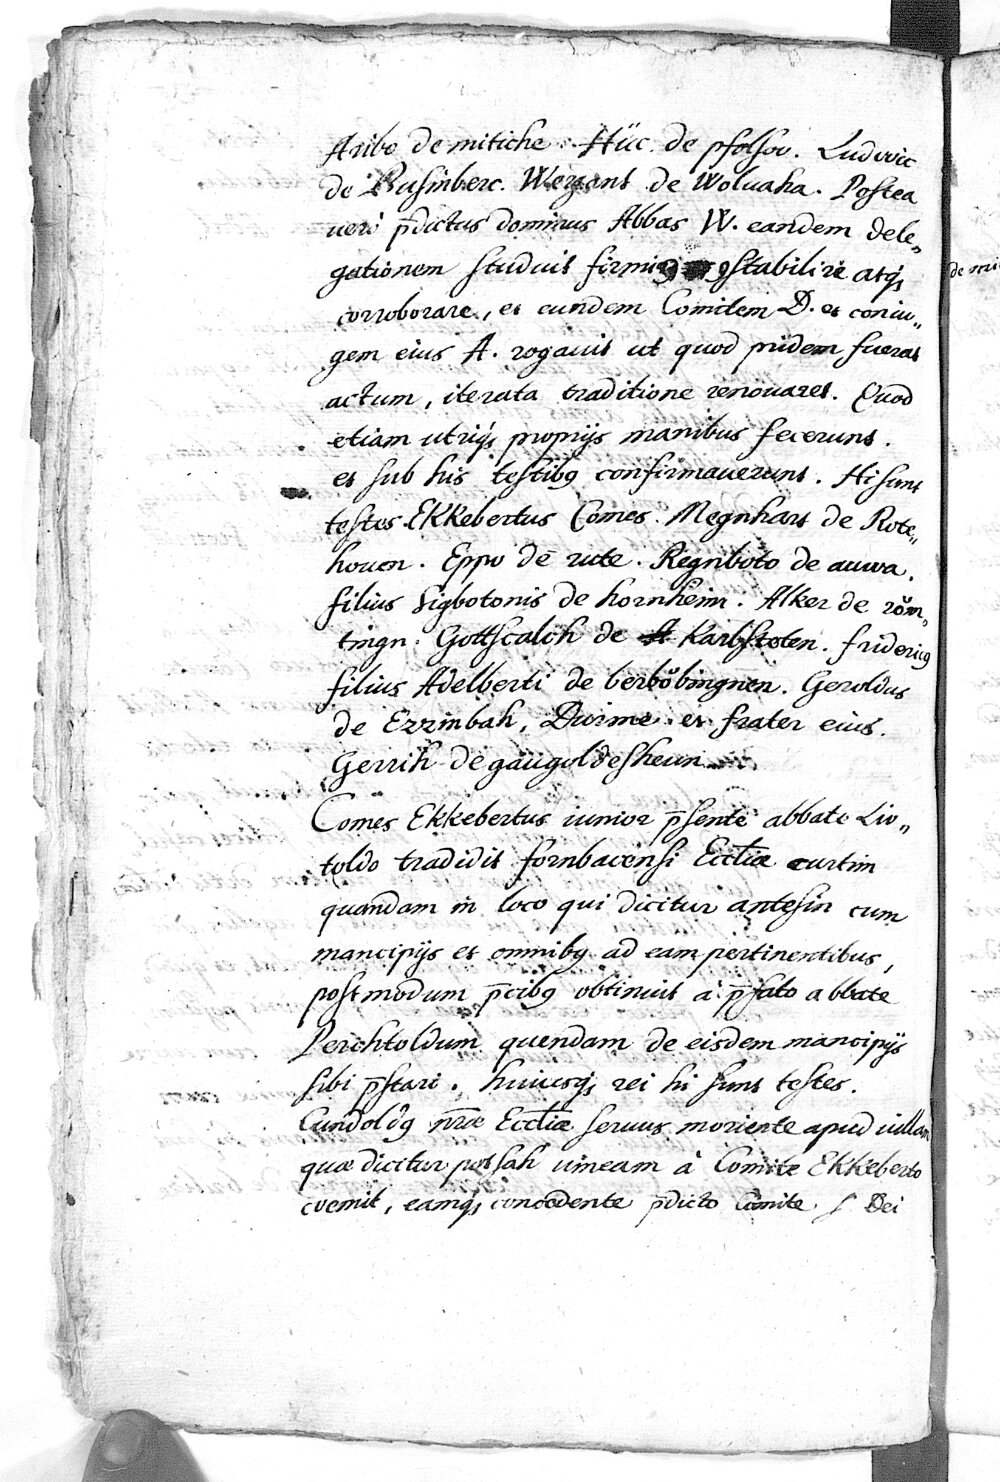 Aribo de mitiche. Hüc. de pfolsov. Ludovic
de Rusinberc. Wezant de Woluaha. Postea
uerò p̄dictus dominus Abbas W. eandem dele„
gationem studuit stabilire atq́;
corroborare, et eundem Comitem D. et coniu„
gem eius A. rogauit ut quod pridem fuerat
actum, iterata traditione renouaret. Quod
etiam utriq́; proprijs manibus fecerunt.
et sub his testibꝰ confirmauerunt. Hi sunt
testes Ekkebertus Comes. Megnhart de Rote„
houen. Eppo de rute. Regnboto de auwa.
filius sigbotonis de hornheim. Alker de rŏm„
tingn. Gottscalch de Karbstoten. fridericꝰ
filius Adelberti de berbŏbingnen. Geroldus
de Ezzinbah, Dwime et frater eius.
Gerrih de gaŭgoldesheim
Comes Ekkebertus iunior p̄sente abbate Liu„
toldo tradidit fornbacensi Eccliæ curtim
quandam in loco qui dicitur antesin cum
mancipijs et omnibꝰ ad eam pertinentibus,
postmodum p̄cibꝰ obtinuit à p̄fato abbate
Perchtoldum quendam de eisdem mancipijs
sibi p̄stari. huiusq́; rei hi sunt testes.
Gundoldꝰ nr̄æ Eccliæ seruus moriente apud uillam
quæ dicitur potsah uineam à Comite Ekkeberto
coemit, eamq́; concedente p̄dicto Comite S Dei
de mi